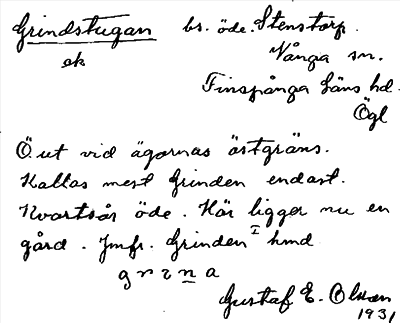 Grindstugan bs. öde. Stenstorp.
ek Vånga sn.
Finspånga läns hd.
Ögl
Ö. ut vid ägornas östgräns.
Kallas mest Grinden endast.
Kvartsår öde. Här ligger nu en
gård. Jmfr. Grinden I hmd
Gustaf E. Olsson
1931